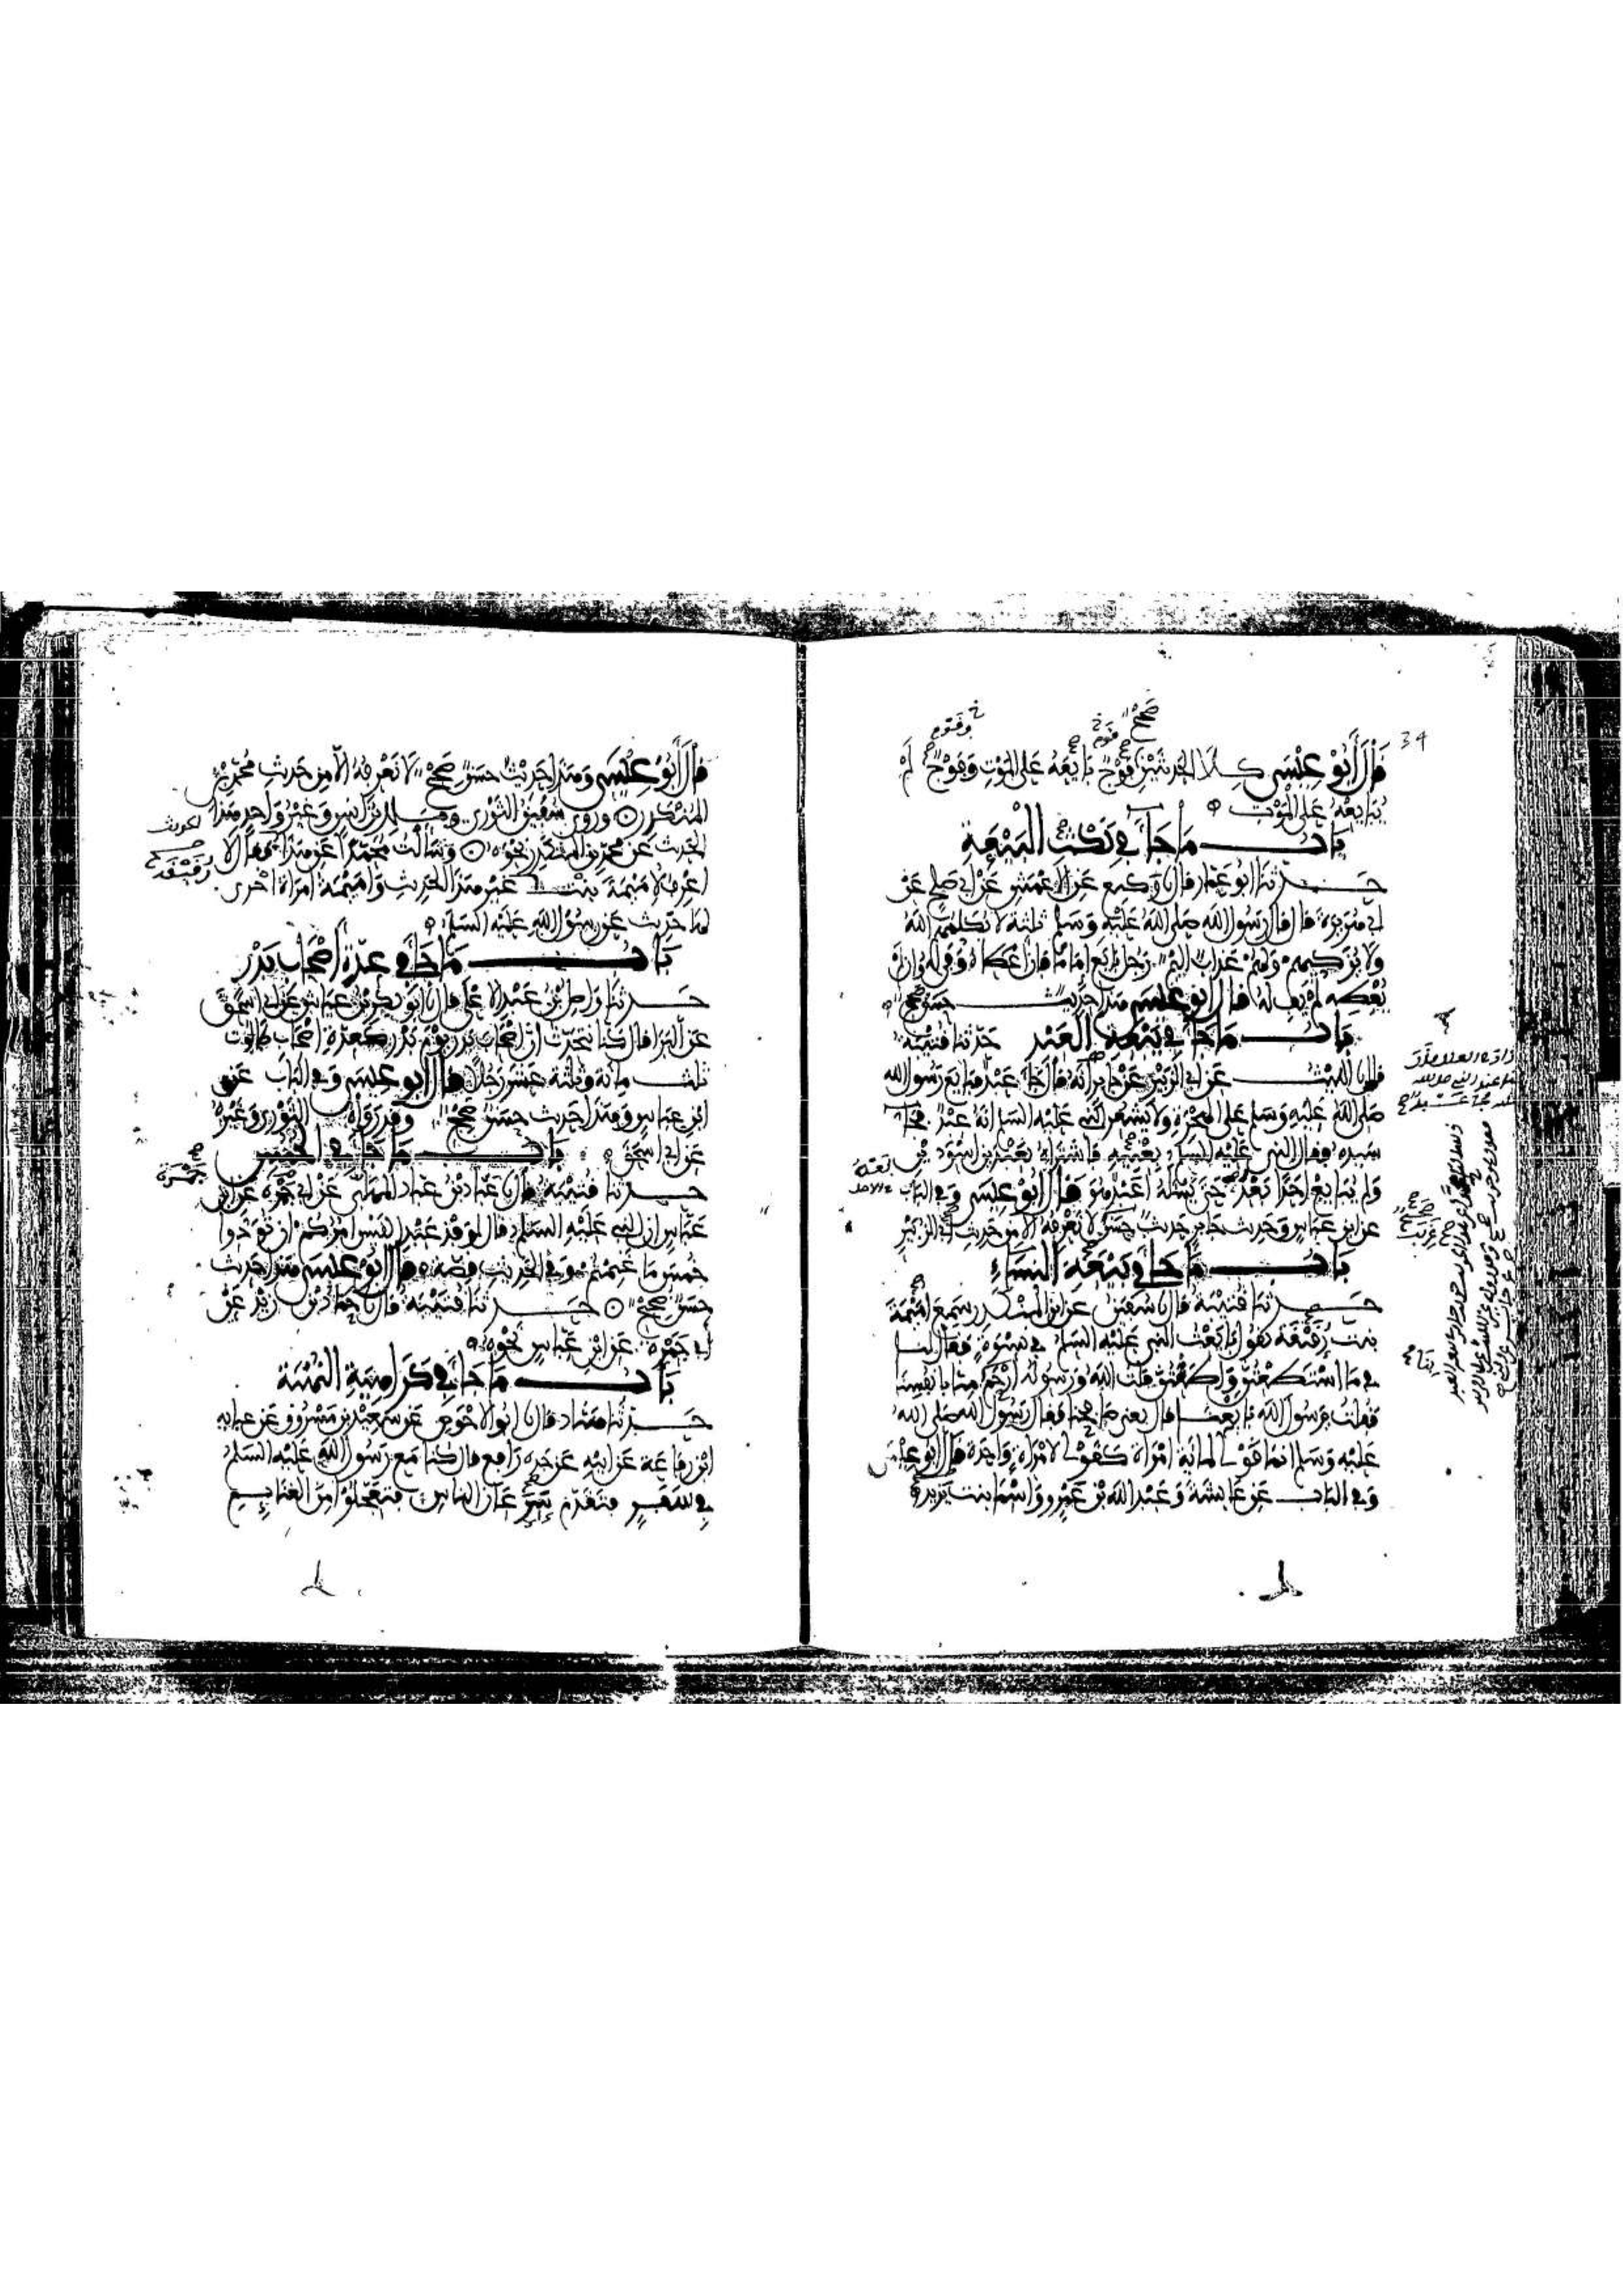 34
قال أبو عيسى كلا الحديثين قوم بايعه على الموت وقوم لم
يبايعه على الموت
باب ما جاء في نكث البيعة
حدثنا أبو عمار قال نا وكيع عن الأعمش عن أبي صلح عن
أبي هريرة قال قال رسول الله صلى الله عليه وسلم ثلثة لا يكلمهم الله
ولا يزكيهم ولهم عذاب أليم رجل بايع إماما فإن أعطاه وفى له وإن لم
يعطه لم يف له قال أبو عيسى هذا حديث حسن صحيح
باب ما جاء في بيعة العبد حدثنا قتيبة
قال نا الليث عن أبي الزبير عن جابر أنه قال جاء عبد فبايع رسول الله
صلى الله عليه وسلم على الهجرة ولا يشعر النبي عليه السلم أنه عبد فجاء
سيده فقال النبي عليه السلم بعنيه فاشتراه بعبدين أسودين
ولم يبايع أحدا بعد حتى يسئله أعبد هو قال أبو عيسى وفي الباب
عن ابن عباس وحديث جابر حديث حسن لا نعرفه إلا من حديث أبي الزبير
باب ما جاء في بيعة النساء
حدثنا قتيبة قال نا سفين عن ابن المنكدر سمع أميمة
بنت رقيقة تقول بايعت النبي عليه السلم في نسوة فقال لنا
في ما استطعتن وأطقتن قلت الله ورسوله أرحم منا بأنفسنا
فقلت يرسول الله بايعنا قال تعني صافحنا فقال رسول الله صلى الله
عليه وسلم إنما قولي لمائة امرأة كقولي لامرأة واحدة قال أبو عيسى
وفي الباب عن عائشة وعبد الله بن عمرو وأسما بنت يزيد
قال أبو عيسى وهذا حديث حسن صحيح لا نعرفه إلا من حديث محمد بن
المنكدر وروى سفين الثوري وملك بن أنس وغير واحد هذا
الحديث عن محمد بن المنكدر نحوه وسألت محمدا عن هذا فقال لا
أعرف لأميمة بنت غير هذا الحديث وأميمة امرأة أخرى
لها حديث عن رسول الله عليه السلم
باب ما جاء في عدة أصحاب بدر
حدثنا واصل بن عبد الأعلى قال نا أبو بكر بن عياش عن أبي إسحق
عن البرا قال كنا نتحدث أن أصحاب بدر يوم بدر كعدة أصحاب طالوت
ثلث مائة وثلثة عشر رجلا قال أبو عيسى وفي الباب عن
ابن عباس وهذا حديث حسن صحيح وقد رواه الثوري وغيره
عن أبي إسحق باب ما جاء في الخمس
حدثنا قتيبة قال نا عباد بن عباد المهلبي عن أبي جمرة عن ابن
عباس أن النبي عليه السلم قال لوفد عبد القيس آمركم أن تؤدوا
خمس ما غنمتم وفي الحديث قصة قال أبو عيسى هذا حديث
حسن صحيح حدثنا قتيبة قال نا حماد بن زيد عن
أبي جمرة عن ابن عباس نحوه
باب ما جاء في كراهية النهبة
حدثنا هناد قال نا أبو الأحوص عن سعيد بن مسروق عن عباية
ابن رفاعة عن أبيه عن جده رافع قال كنا مع رسول الله عليه السلم
في سفر فتقدم سرعان الناس فتعجلوا من الغنايم